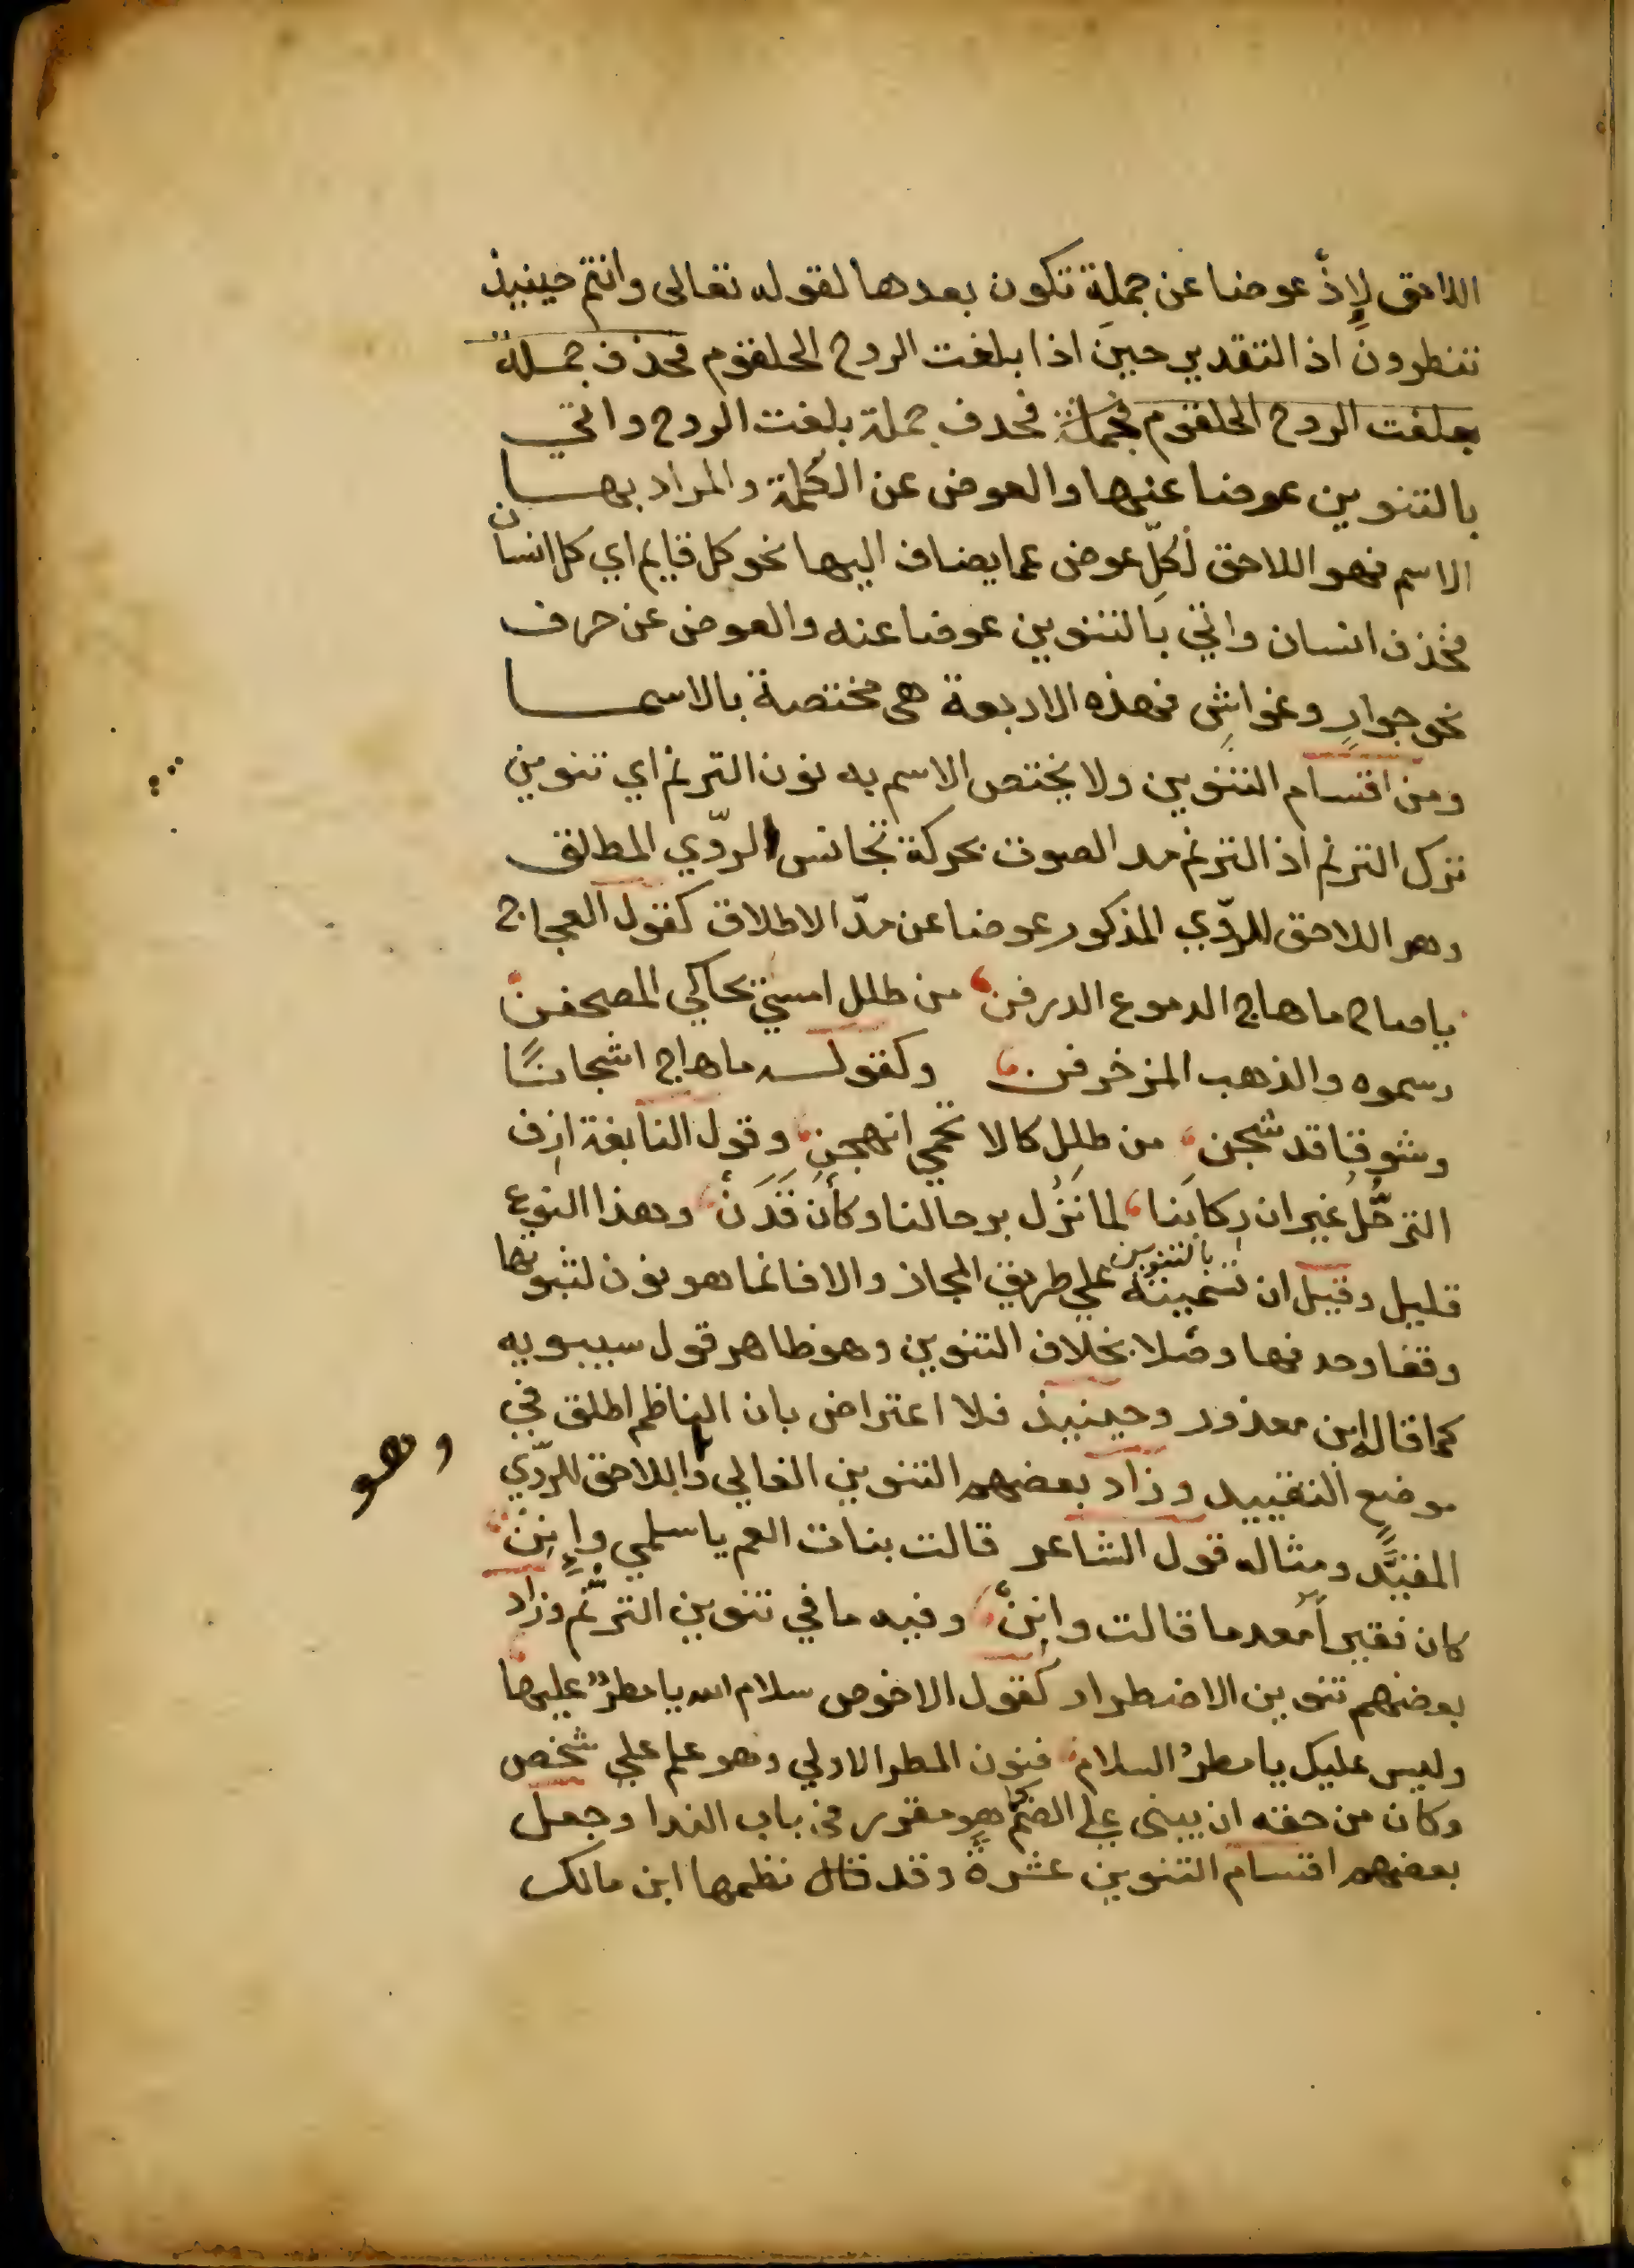 اللاحق لإذْ عوضا عن جملة تكون بعدها لقوله تعالى وانتم حينيذ
تنظرون اذ التقدير حين اذا بلغت الروح الحلقوم فحذف جملة
بلغت الروح الحلقوم فجملة فحدف جملة بلغت الروح واتي
بالتنوين عوضا عنها والعوض عن الكلمة والمراد بها
الاسم فهو اللاحق لكلّ عوض عما يضاف اليها نحو كل قايم اي كل انسان
فحذف انسان واتي بالتنوين عوضا عنه والعوض عن حرف
نحو جوارٍ وغواشٍ فهذه الاربعة هى مختصة بالاسما
ومن اقسام التنوين ولا يختص الاسم به نون الترنم اي تنوين
ترك الترنم اذ الترنم مد الصوت بحركة تجانس الرّوي المطلق
وهو اللاحق للرّوي المذكور عوضا عن مدّ الاطلاق كقول العجاج
ياصاح ما هاج الدموع الدرفن من طلل امسي يحاكي المصحفن
رسموه والذهب المزخرفن وكقوله ما هاج اشجانًا
وشوقا قد شجن من طلل كالا تحمي انهجن وقول النابغة ازف
الترحّل غير ان ركابنا لما نزل برحالنا وكأن قدن وهذا النوع
قليل وقيل ان تسميته بالتنوين علي طريق المجاز والا فانما هو نون لثبوتها
وقفا وحدفها وصلا بخلاف التنوين وهو ظاهر قول سيبويه
كما قاله ابن معذور وحينيذ فلا اعتراض بان الناظم اطلق في
موضع التقييد وزاد بعضهم التنوين الغالي واللاحق للرّوي
وهو
المقيَّد ومثاله قول الشاعر قالت بنات العم ياسلمي وإنن
كان فقيراً معدما قالت وإنن وفيه ما في تنوين الترنّم وزاد
بعضهم تنوين الاضطرار كقول الاخوص سلام الله يا مطرٌ عليها
وليس عليك يا مطرُ السلام فنون المطر الاولي وهو علم علي شخص
وكان من حقه ان يبنى علي الضم كما هو مقرر في باب الندا وجعل
بعضهم اقسام التنوين عشرة وقد قال نظمها ابن مالك